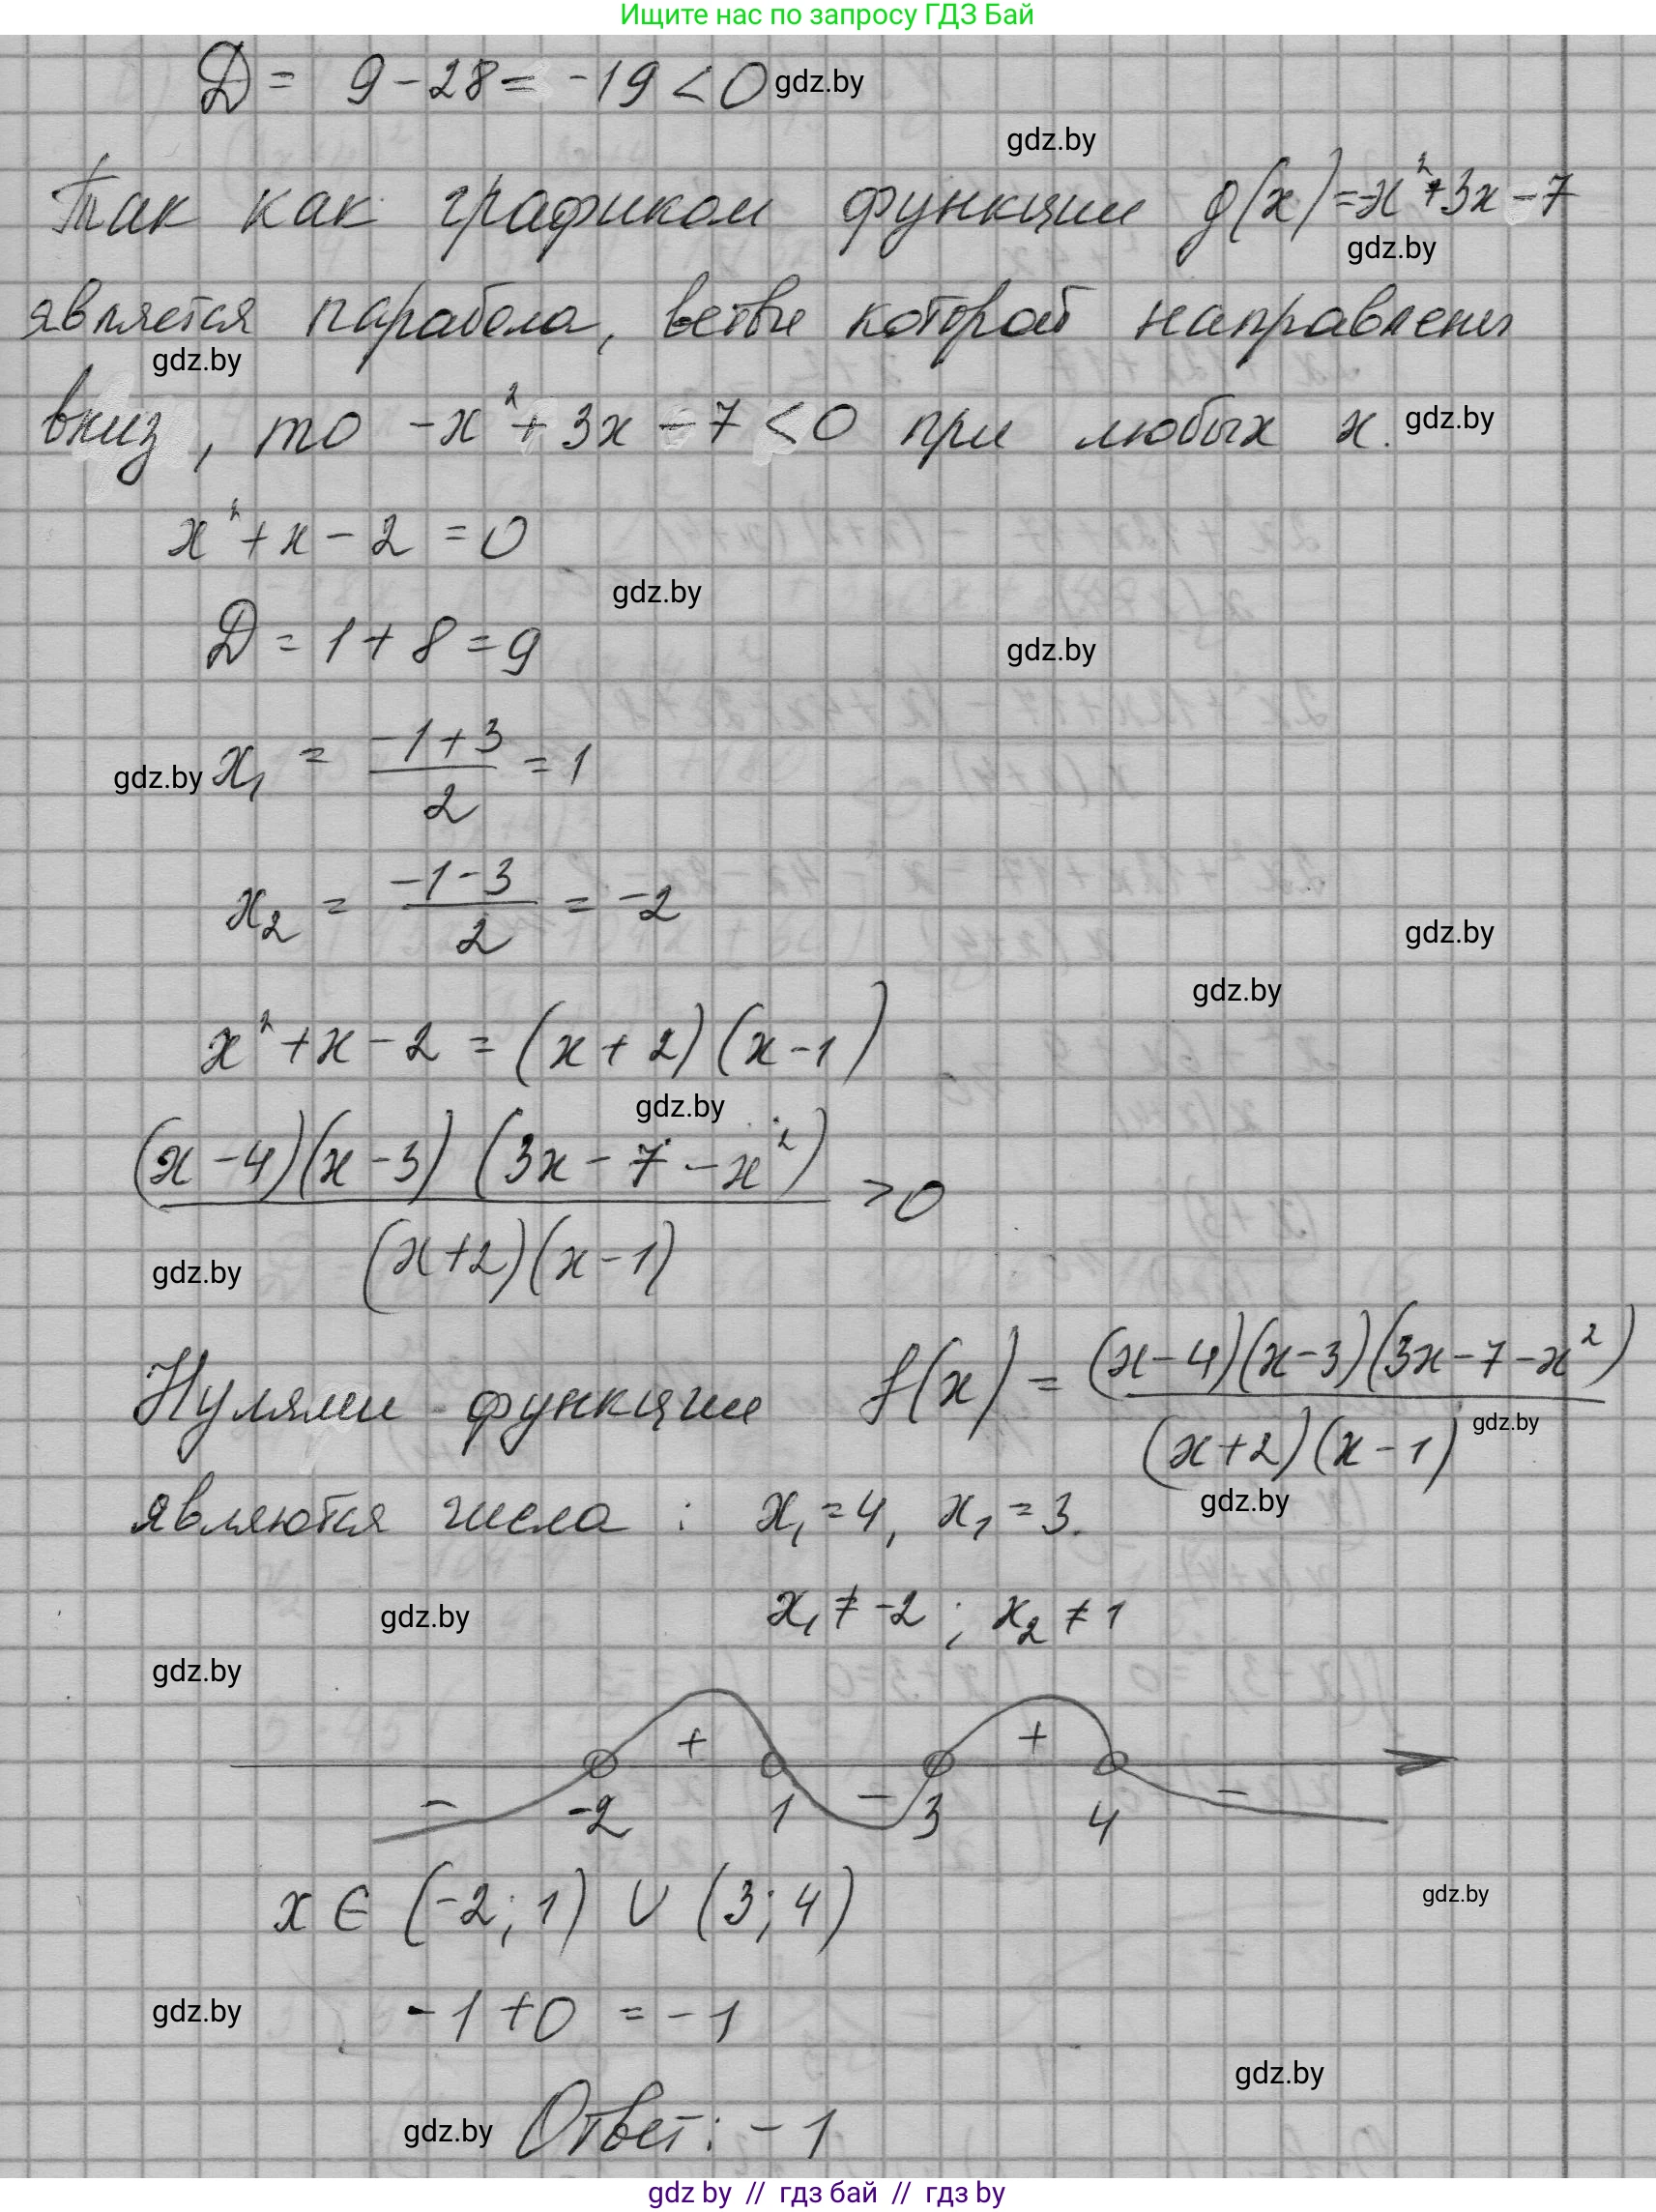 Ищите нас по запросу ГДЗ Бай
D = 9 - 28 = -19 < 0 gdz.by
gdz.by
Так как графиком функции g(x) = -x² + 3x - 7
gdz.by
является парабола, ветви которой направлены
gdz.by
вниз, то -x² + 3x - 7 < 0 при любых x. gdz.by
x² + x - 2 = 0
gdz.by
D = 1 + 8 = 9
gdz.by
gdz.by x₁ = (-1+3)/2 = 1
x₂ = (-1-3)/2 = -2
gdz.by
gdz.by
x² + x - 2 = (x+2)(x-1)
gdz.by
(x-4)(x-3)(3x-7-x²)/(x+2)(x-1) > 0
gdz.by
Нулями функции f(x) = (x-4)(x-3)(3x-7-x²)/(x+2)(x-1) gdz.by
являются числа : x₁ = 4, x₁ = 3.
gdz.by
x₁ ≠ -2 ; x₂ ≠ 1
gdz.by
gdz.by
+ +
- - -
-2 1 3 4
gdz.by
x ∈ (-2; 1) ∪ (3; 4)
gdz.by -1 + 0 = -1
gdz.by
gdz.by Ответ: -1
gdz by // гдз бай // гдз by